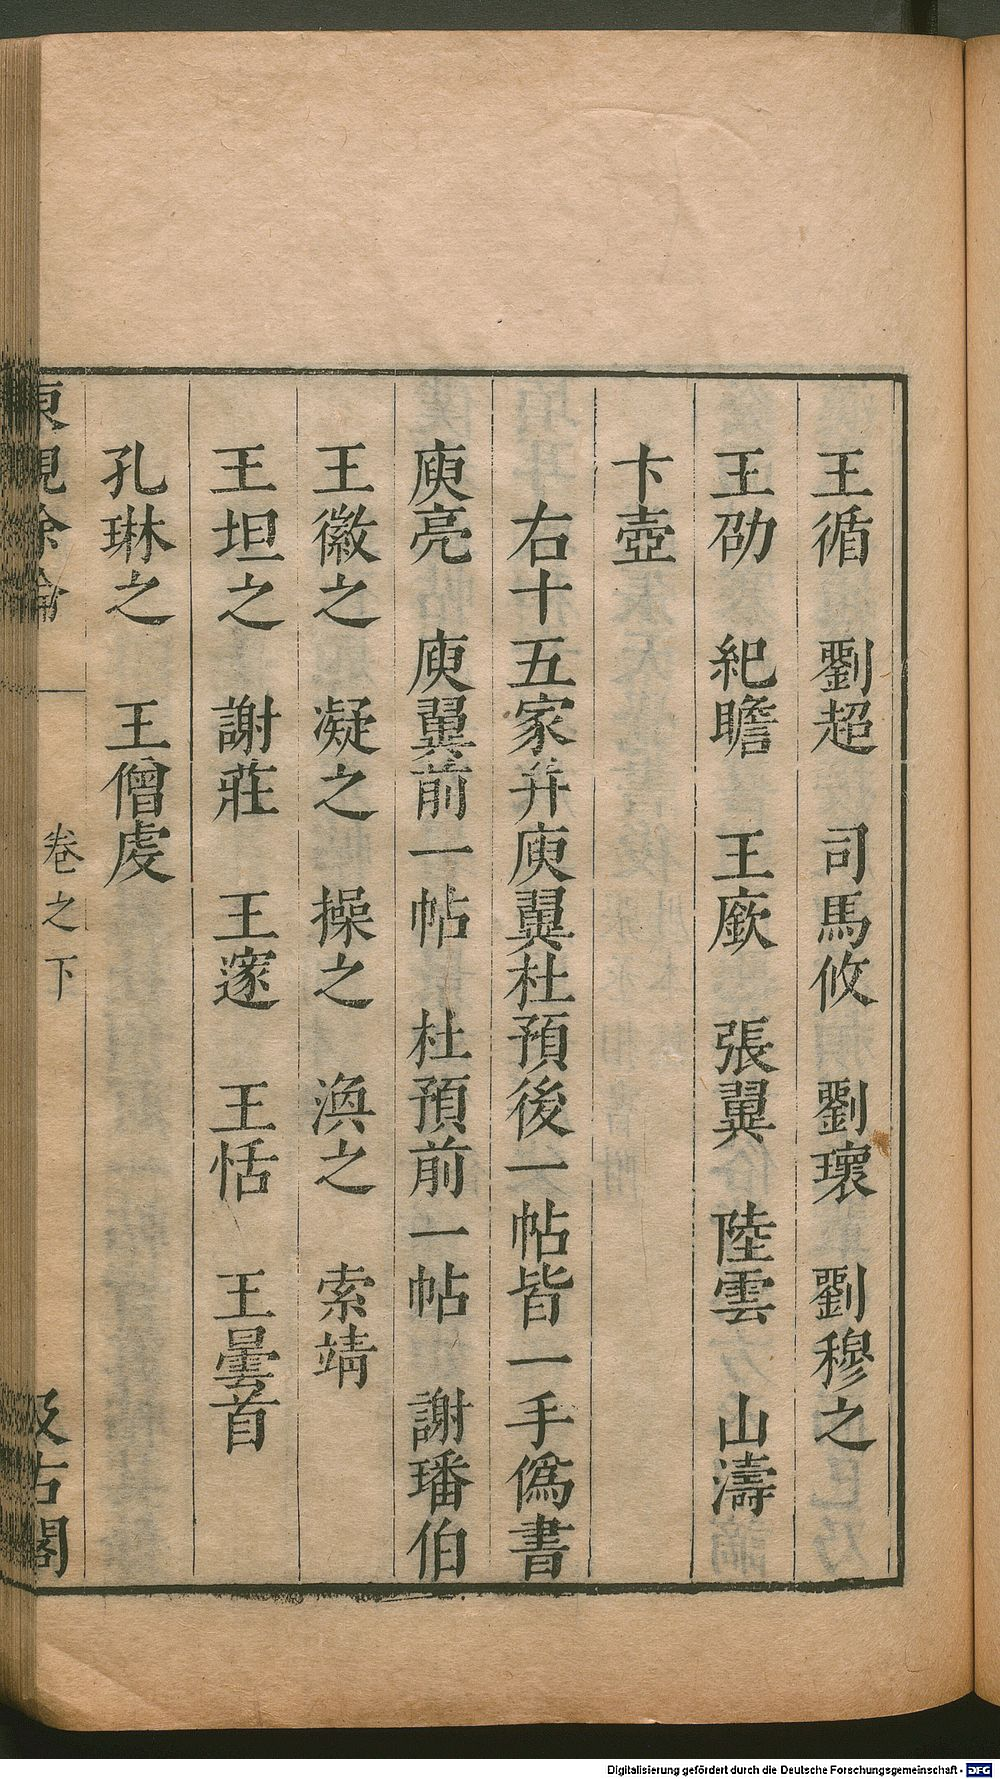 王循　劉超　司馬攸　劉瓌　劉穆之
王劭　紀瞻　王廞　張翼　陸雲　山濤
卞壺
右十五家并庾翼杜預後一帖皆一手僞書
庾亮　庾翼前一帖　杜預前一帖　謝璠伯
王徽之　凝之　操之　渙之　索靖
王坦之　謝莊　王邃　王恬　王曇首
孔琳之　王僧虔
東觀餘論　卷之下　汲古閣
Digitalisierung gefördert durch die Deutsche Forschungsgemeinschaft - DFG